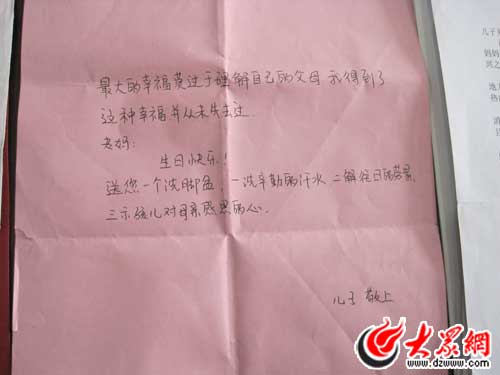 最大的幸福莫过于理解自己的父母 我得到了
这种幸福并从未失去过.
老妈:
生日快乐!
送您一个洗脚盆, 一洗辛勤的汗水 二解往日的劳累,
三示孩儿对母亲感恩的心.
儿子 敬上
儿子
妈妈
地
大眾網
www.dzwww.com